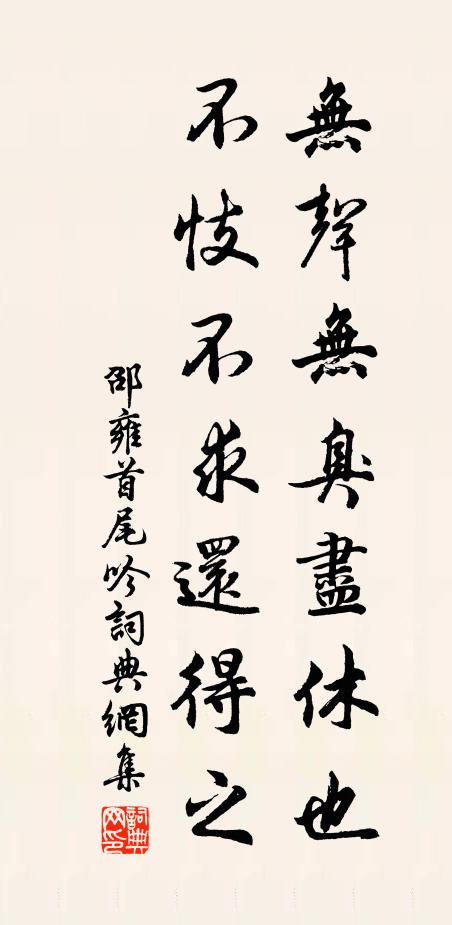 無聲無臭盡休也
不忮不求還得之
邵雍首尾吟詞典網集
詞典網印